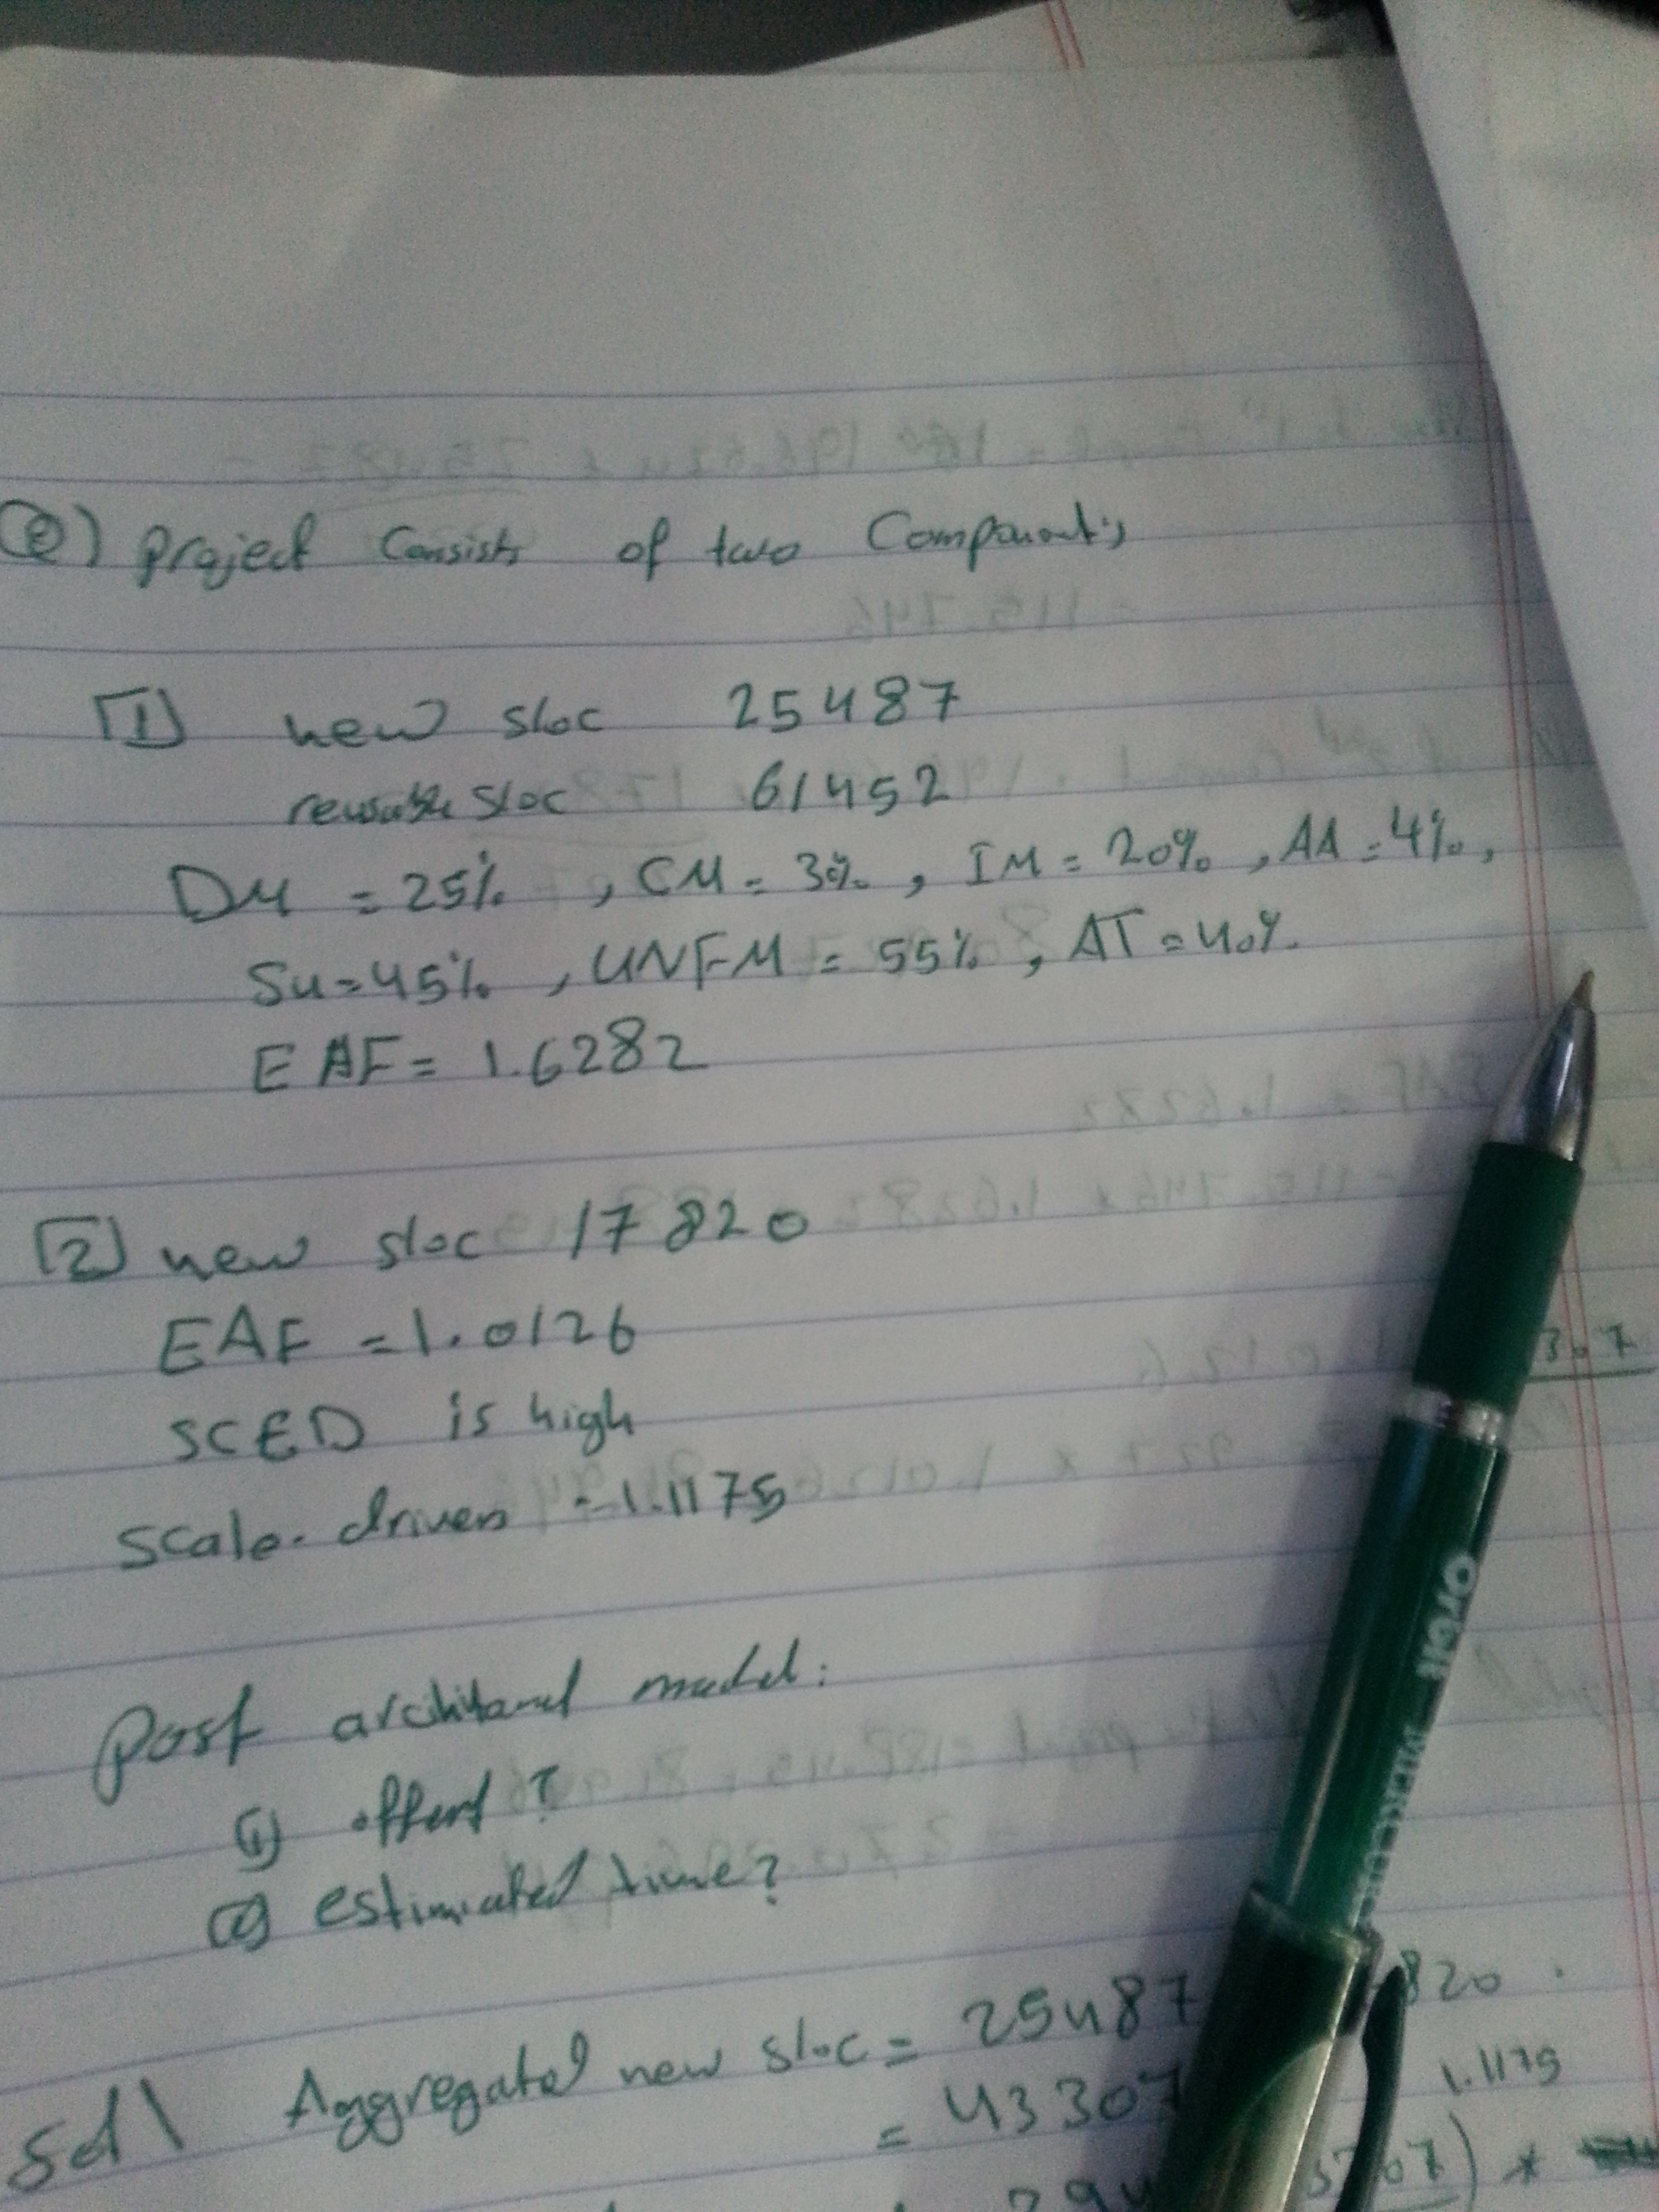 (2) project consists of two components
[1] new sloc 25487
reusable sloc 61452
DM = 25%, CM = 3%, IM = 20%, AA = 4%,
Su = 45%, UNFM = 55%, AT = 40%.
EAF = 1.6282
[2] new sloc 17820
EAF = 1.0126
SCED is high
scale drivers = 1.1175
307
Post model:
(1) effort?
(2) estimated time?
Sol\ Aggregated new sloc = 25487 820
= 43307 1.1175
294 307) *
Orex